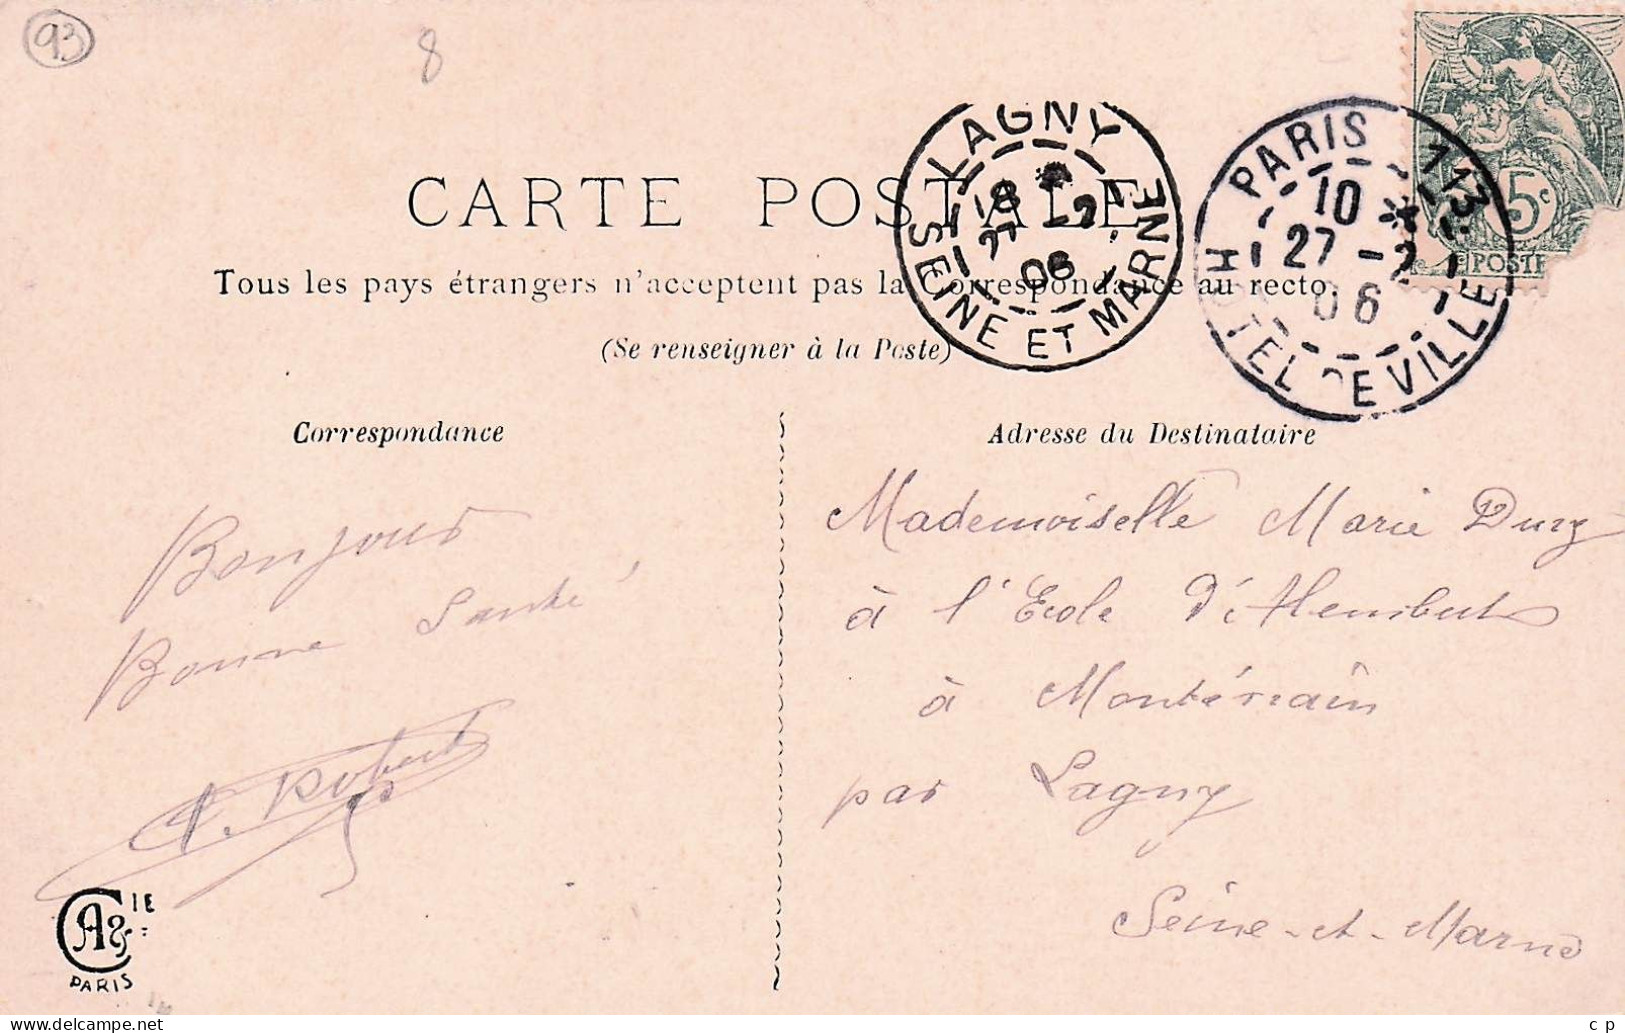 93
8
CARTE POSTALE
LAGNY
18
27 -2
06
SEINE ET MARNE
PARIS 113
10
27 -2
06
HOTEL DE VILLE
5c
POSTE
Tous les pays étrangers n'acceptent pas la Correspondance au recto.
(Se renseigner à la Poste)
Correspondance
Adresse du Destinataire
Bonjour
Bonne Santé
Robert
Mademoiselle Marie
à l'Ecole
à Montévrain
par Lagny
Seine-et-Marne
CA & IE
PARIS
c p